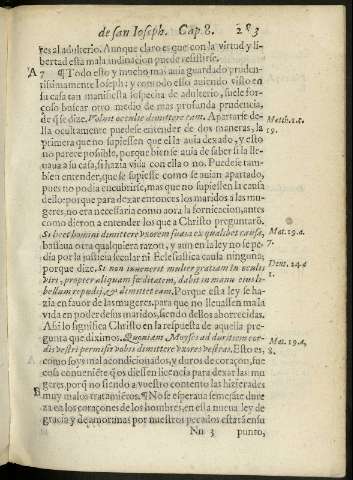 de san Ioseph. Cap. 8. 283
res al adulterio. Aunque claro es que con la virtud y li-
bertad esta mala inclinacion puede resistirse.
A 7 ¶Todo esto y mucho mas auia guardado pruden-
tissimamente Ioseph: y como do esto auiendo visto en
su casa tan manifiesta sospecha de adulterio, fuele for-
çoso buscar otro medio de mas profunda prudencia,
de q̃ se dize. Voluit occulte dimittere eam. Apartarse de-
lla ocultamente puedese entender de dos maneras, la
primera que no supiessen que el la auia dexado, y esto
no parece posible, porque bien se auia de saber si la lle-
uaua a su casa, si hazia vida con ella o no. Puedese tam-
bien entender, que se supiesse como se auian apartado,
pues no podia encubrirse, mas que no supiessen la causa
dello: porque para dexar entonces los maridos a las mu-
geres, no era necessaria como aora la fornicacion, antes
como dieron a entender los que a Christo preguntarõ.
Si licet homini dimittere vxorem suam ex qualibet causa,
bastaua otra qualquiera razon, y aun en la ley no se pe-
dia por la justicia seglar ni Eclesiastica causa ninguna;
porque dize. Si non inuenerit mulier gratiam in oculis
viri, propter aliquam fœditatem, dabit in manu eius li-
bellum repudij, & dimittet eam. Porque esta ley se ha-
zia en fauor de las mugeres, para que no lleuassen mala
vida en poder de sus maridos, siendo dellos aborrecidas.
Assi lo significa Christo en la respuesta de aquella pre-
gunta que diximos. Quoniam Moyses ad duritiem cor-
dis vestri permisit vobis dimittere vxores vestras. Esto es,
como soys mal acondicionados, y duros de coraçon, fue
cosa conueniẽte q̃ os diessen licencia para dexar las mu
geres, porq̃ no siendo a vuestro contento las hizierades
B muy malos tratamiẽtos. ¶No se esperaua semejãte dure
za en los coraçones de los hombres, en esta nueua ley de
gracia y de amor, mas por nuestros pecados estarà en su
Nn 3 punto,
Matth. 1. a.
19.
Mat. 19. a.
7.
Deut. 24. a
1.
Mat. 19. a.
8.